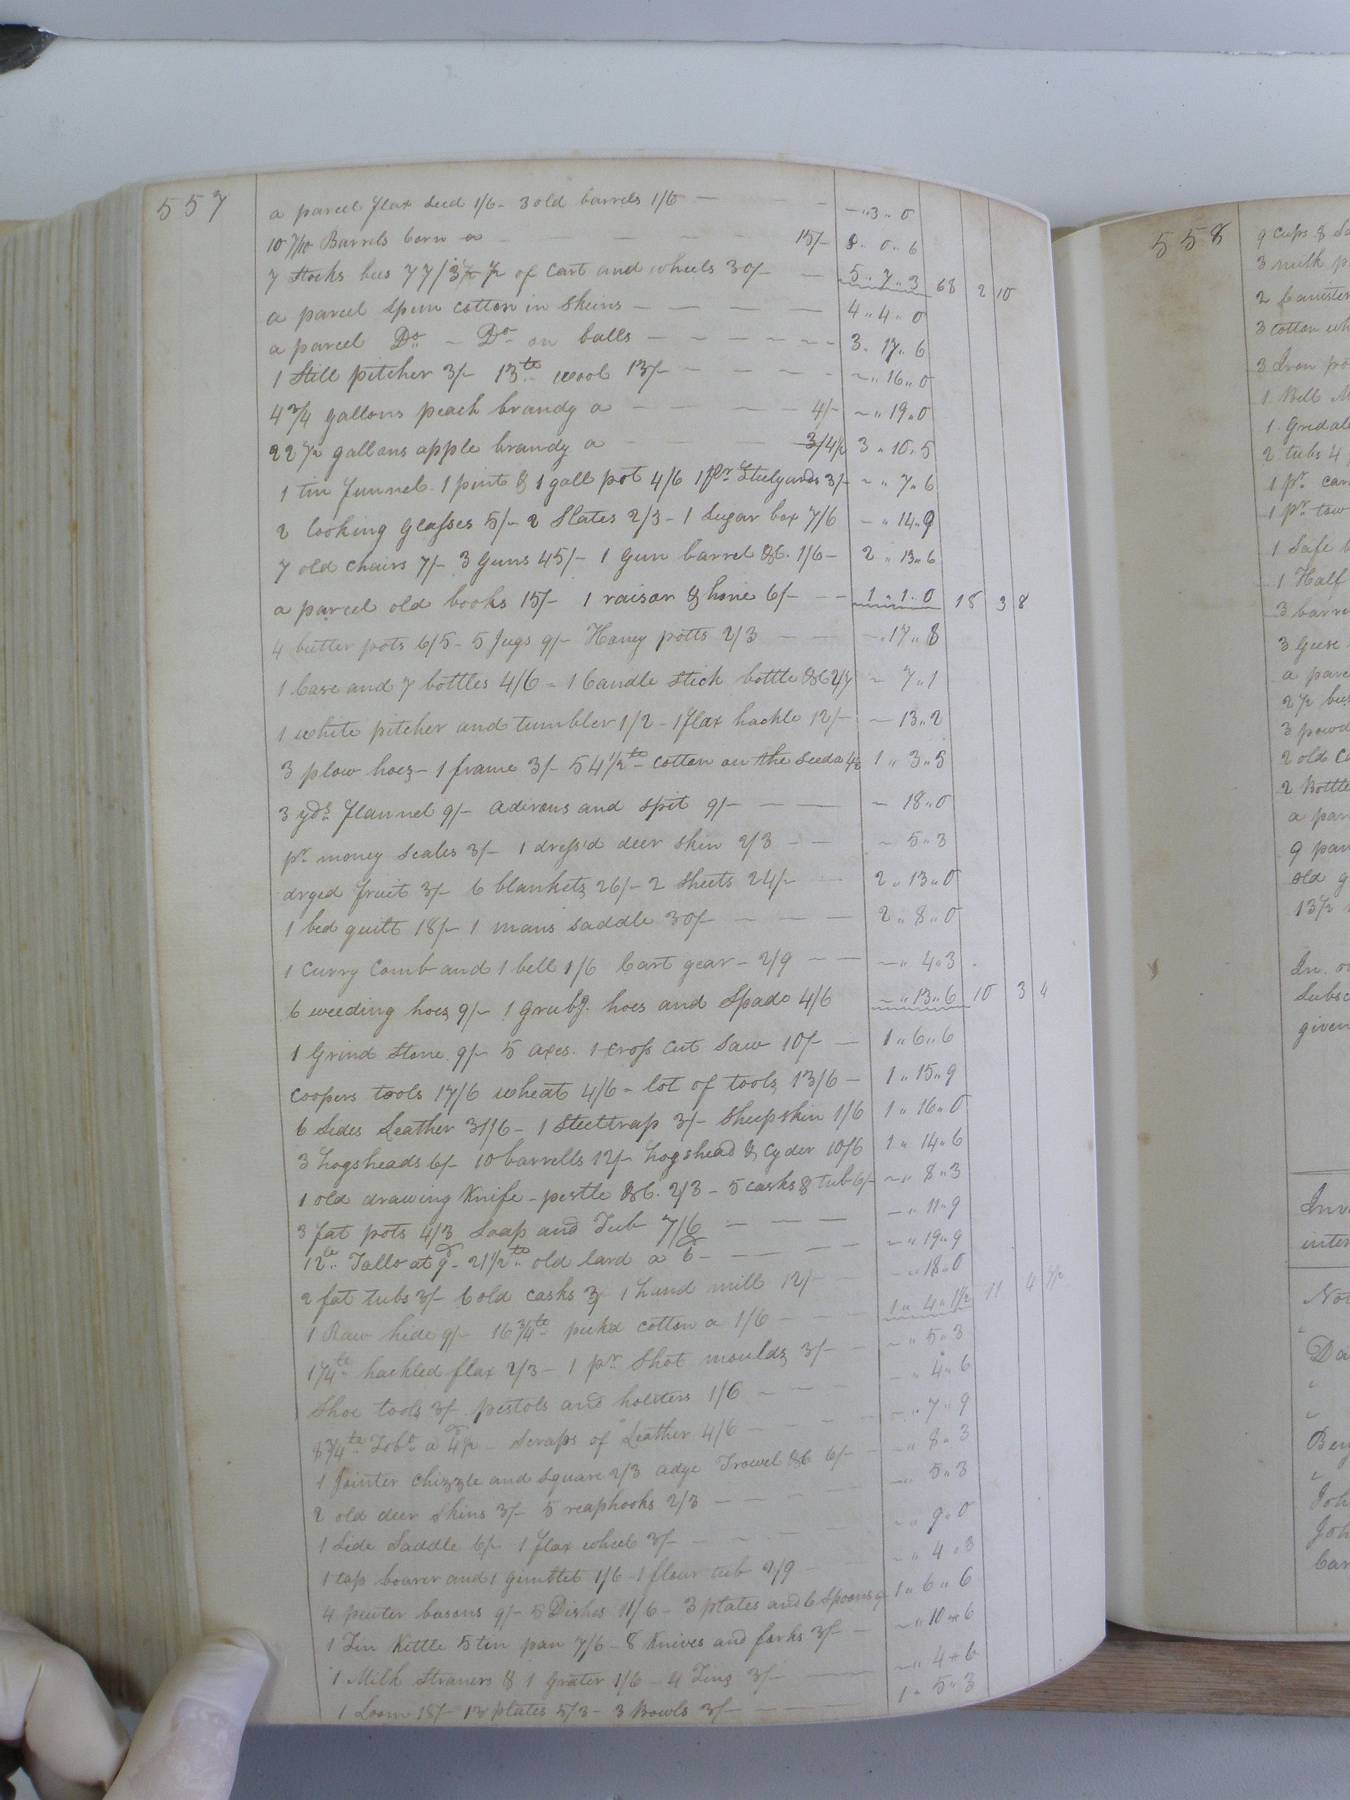 557
a parcel flax seed 1/6 - 3 old barrels 1/6 — - " 3 " 0
10 7/10 Barrels corn a — 15/- 8 " 0 " 6
7 stocks bees 77/3 1/2 of cart and wheels 30/- — 5 " 7 " 3 68 2 10
a parcel spun cotton in skeins — 4 " 4 " 0
a parcel Do - Do on balls — 3 " 17 " 6
1 still pitcher 3/- 13 lb wool 13/- — - " 16 " 0
4 3/4 gallons peach brandy a — 4/- - " 19 " 0
22 1/2 gallons apple brandy a 3/4 1/2 3 " 10 " 5
1 tin funnel 1 pint & 1 gall pot 4/6 1 pr Steelyards 3/- - " 7 " 6
2 looking glasses 5/- 2 Slates 2/3 - 1 Sugar box 7/6 - " 14 " 9
7 old chairs 7/- 3 Guns 45/- 1 Gun barrel &c. 1/6 - 2 " 13 " 6
a parcel old books 15/- 1 raisor & hone 6/- — 1 " 1 " 0 18 3 8
4 butter pots 6/5 - 5 Jugs 9/- Haney potts 2/3 — - " 17 " 8
1 case and 7 bottles 4/6 - 1 Candle stick bottle &c 2/7 - 7 " 1
1 white pitcher and tumbler 1/2 - 1 flax hackle 12/- - 13 " 2
3 plow hoes - 1 frame 3/- 54 1/2 lb cotton on the seed a 4 1/2 1 " 3 " 5
3 yds flannel 9/- adirons and spit 9/- — - 18 " 0
pr money scales 3/- 1 dress'd deer skin 2/3 — - 5 " 3
dryed fruit 3/- 6 blankets 26/- 2 sheets 24/- — 2 " 13 " 0
1 bed quilt 18/- 1 mans saddle 30/- — 2 " 8 " 0
1 Curry Comb and 1 bell 1/6 Cart gear - 2/9 — - " 4 " 3
6 weeding hoes 9/- 1 Grubg. hoes and Spade 4/6 - " 13 " 6 10 3 4
1 Grind Stone 9/- 5 axes. 1 cross cut saw 10/- — 1 " 6 " 6
Coopers tools 17/6 wheat 4/6 - lot of tools 13/6 - 1 " 15 " 9
6 sides Leather 31/6 - 1 Steeltrap 3/- sheepskin 1/6 1 " 16 " 0
3 hogsheads 6/- 10 barrells 12/- hogshead & cyder 10/6 1 " 14 " 6
1 old drawing knife - pestle &c. 2/3 - 5 casks & tub 6/- - " 8 " 3
3 fat pots 4/3 Soap and Tub 7/6 — - " 11 " 9
12 lb Tallo at 9d - 21 1/2 lb old lard a 6d — - " 19 " 9
2 fat tubs 3/- 6 old casks 3/ 1 hand mill 12/- - " 18 " 0
1 Raw hide 9/- 16 3/4 lb pick'd cotton a 1/6 — 1 " 4 " 1 1/2 11 4 1/2
1 1/4 lb hackled flax 2/3 - 1 pr Shot moulds 3/- - " 5 " 3
Shoe tools 3/- pistols and holsters 1/6 — - " 4 " 6
8 3/4 lb Tobo a 4 1/2d - Scraps of Leather 4/6 — - " 7 " 9
1 Jointer Chizzle and square 2/3 adge Trowel &c 6/- - " 8 " 3
2 old deer skins 3/- 5 reaphooks 2/3 — - " 5 " 3
1 Side Saddle 6/- 1 flax wheel 3/- — - " 9 " 0
1 tap boarer and 1 gimblet 1/6 - 1 flour tub 2/9 - " 4 " 3
4 pewter basons 9/- 5 Dishes 11/6 - 3 plates and 6 Spoons 6/- 1 " 6 " 6
1 Tin Kettle 5 tin pan 7/6 - 8 Knives and forks 3/- — - " 10 " 6
1 Milk Straners & 1 grater 1/6 - 4 Tins 3/- — - " 4 " 6
1 Loom 18/- 13 plates 5/3 - 3 Bowls 3/- — 1 " 5 " 3
558
9 cups &
3 milk
2
3 cotton
3 Iron
1 Bell
1
2 tubs 4
1 pr.
1 pr. tow
1 Safe
1 Half
3
3 Geese
a
2 1/2
3
2 old
2 Bottle
a
9
old
13 1/2
In
given